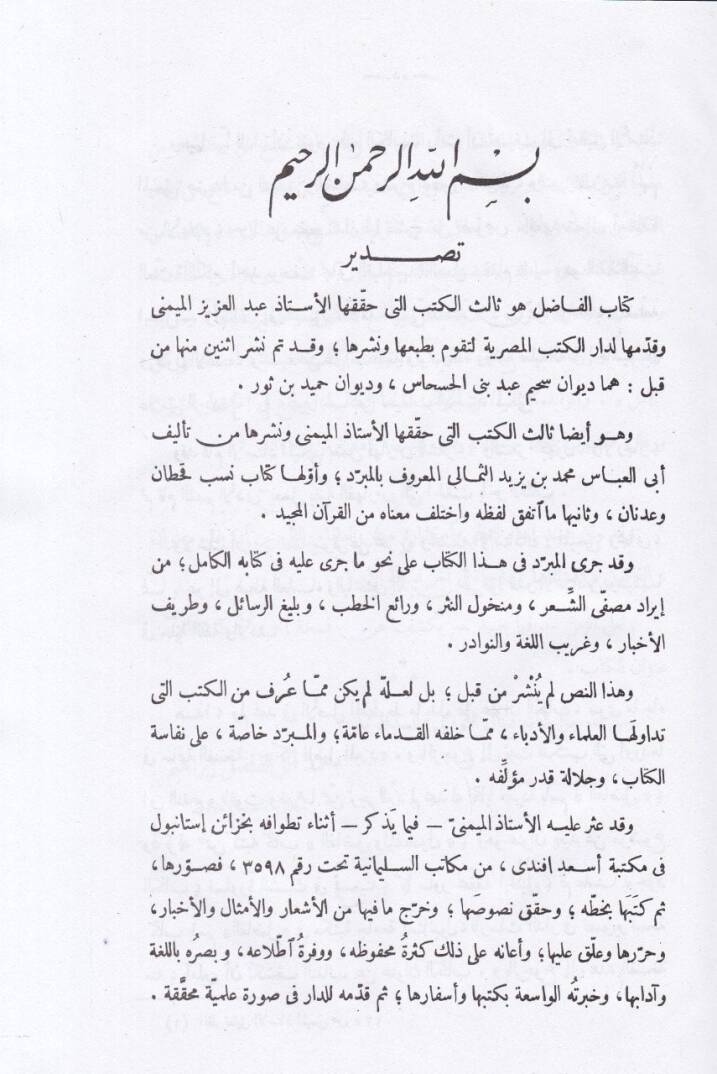 بسم الله الرحمن الرحيم
تصدير
كتاب الفاضل هو ثالث الكتب التى حقّقها الأستاذ عبد العزيز الميمنى
وقدّمها لدار الكتب المصرية لتقوم بطبعها ونشرها ؛ وقد تم نشر اثنين منها من
قبل : هما ديوان سحيم عبد بنى الحسحاس ، وديوان حميد بن ثور .
وهو أيضا ثالث الكتب التى حقّقها الأستاذ الميمنى ونشرها من تأليف
أبى العباس محمد بن يزيد الثمالى المعروف بالمبرّد ؛ وأوّلها كتاب نسب قحطان
وعدنان ، وثانيها ما آتفق لفظه واختلف معناه من القرآن المجيد .
وقد جرى المبرّد فى هذا الكتاب على نحو ما جرى عليه فى كتابه الكامل ؛ من
إيراد مصفّى الشِّعر ، ومنخول النثر ، ورائع الخطب ، وبليغ الرسائل ، وطريف
الأخبار ، وغريب اللغة والنوادر .
وهذا النص لم يُنْشرْ من قبل ؛ بل لعلّه لم يكن ممّا عُرف من الكتب التى
تداولهَا العلماء والأدباء ، ممّا خلفه القدماء عامّة ؛ والمبرّد خاصّة ، على نفاسة
الكتاب ، وجلالة قدر مؤلِّفه .
وقد عثر عليه الأستاذ الميمنىّ – فيما يَذكر – أثناء تطوافه بخزائن إستانبول
فى مكتبة أسعد افندى ، من مكاتب السليمانية تحت رقم ٣٥٩٨ ، فصوّرها ،
ثم كتَبَها بخطّه ؛ وحقّق نصوصَها ؛ وخرّج ما فيها من الأشعار والأمثال والأخبار،
وحرّرها وعلّق عليها ؛ وأعانه على ذلك كثرةُ محفوظه ، ووفرةُ آطّلاعه ، وبصرُه باللغة
وآدابها ، وخبرتُه الواسعة بكتبها وأسفارها ؛ ثم قدّمه للدار فى صورة علميّة محقَّقة .